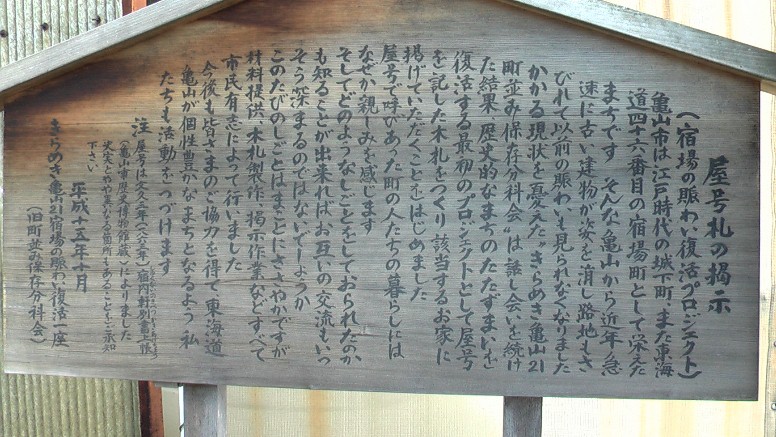 屋号札の掲示
(宿場の賑わい復活プロジェクト)
亀山市は江戸時代の城下町、また東海
道四十六番目の宿場町として栄えた
まちです そんな亀山から近年急
速に古い建物が姿を消し路地もさ
びれて以前の賑わいも見られなくなりました
かかる現状を憂えた〝きらめき亀山21
町並み保存分科会〟は話し会いを続け
た結果、歴史的なまちのたたずまいを
復活する最初のプロジェクトとして屋号
を記した木札をつくり該当するお家に
掲げていただくことをはじめました
屋号で呼びあった町の人たちの暮らしには
なぜか親しみを感じます
そしてどのようなしごとをしておられたのか
も知ることが出来ればお互いの交流もいっ
そう深まるのではないでしょうか
このたびのしごとはまことにささやかですが
材料提供、木札製作、掲示作業などすべて
市民有志によって行いました
今後も皆さまのご協力を得て東海道
亀山が個性豊かなまちとなるよう私
たちも活動をつづけます
注 屋号は文久三年(一八六三年)「宿内軒別書上帳」
(亀山市歴史博物館蔵)によりました
史実とやや異なる箇所もあることをご承知
下さい
平成十五年十月
きらめき亀山21宿場の賑わい復活一座
(旧町並み保存分科会)